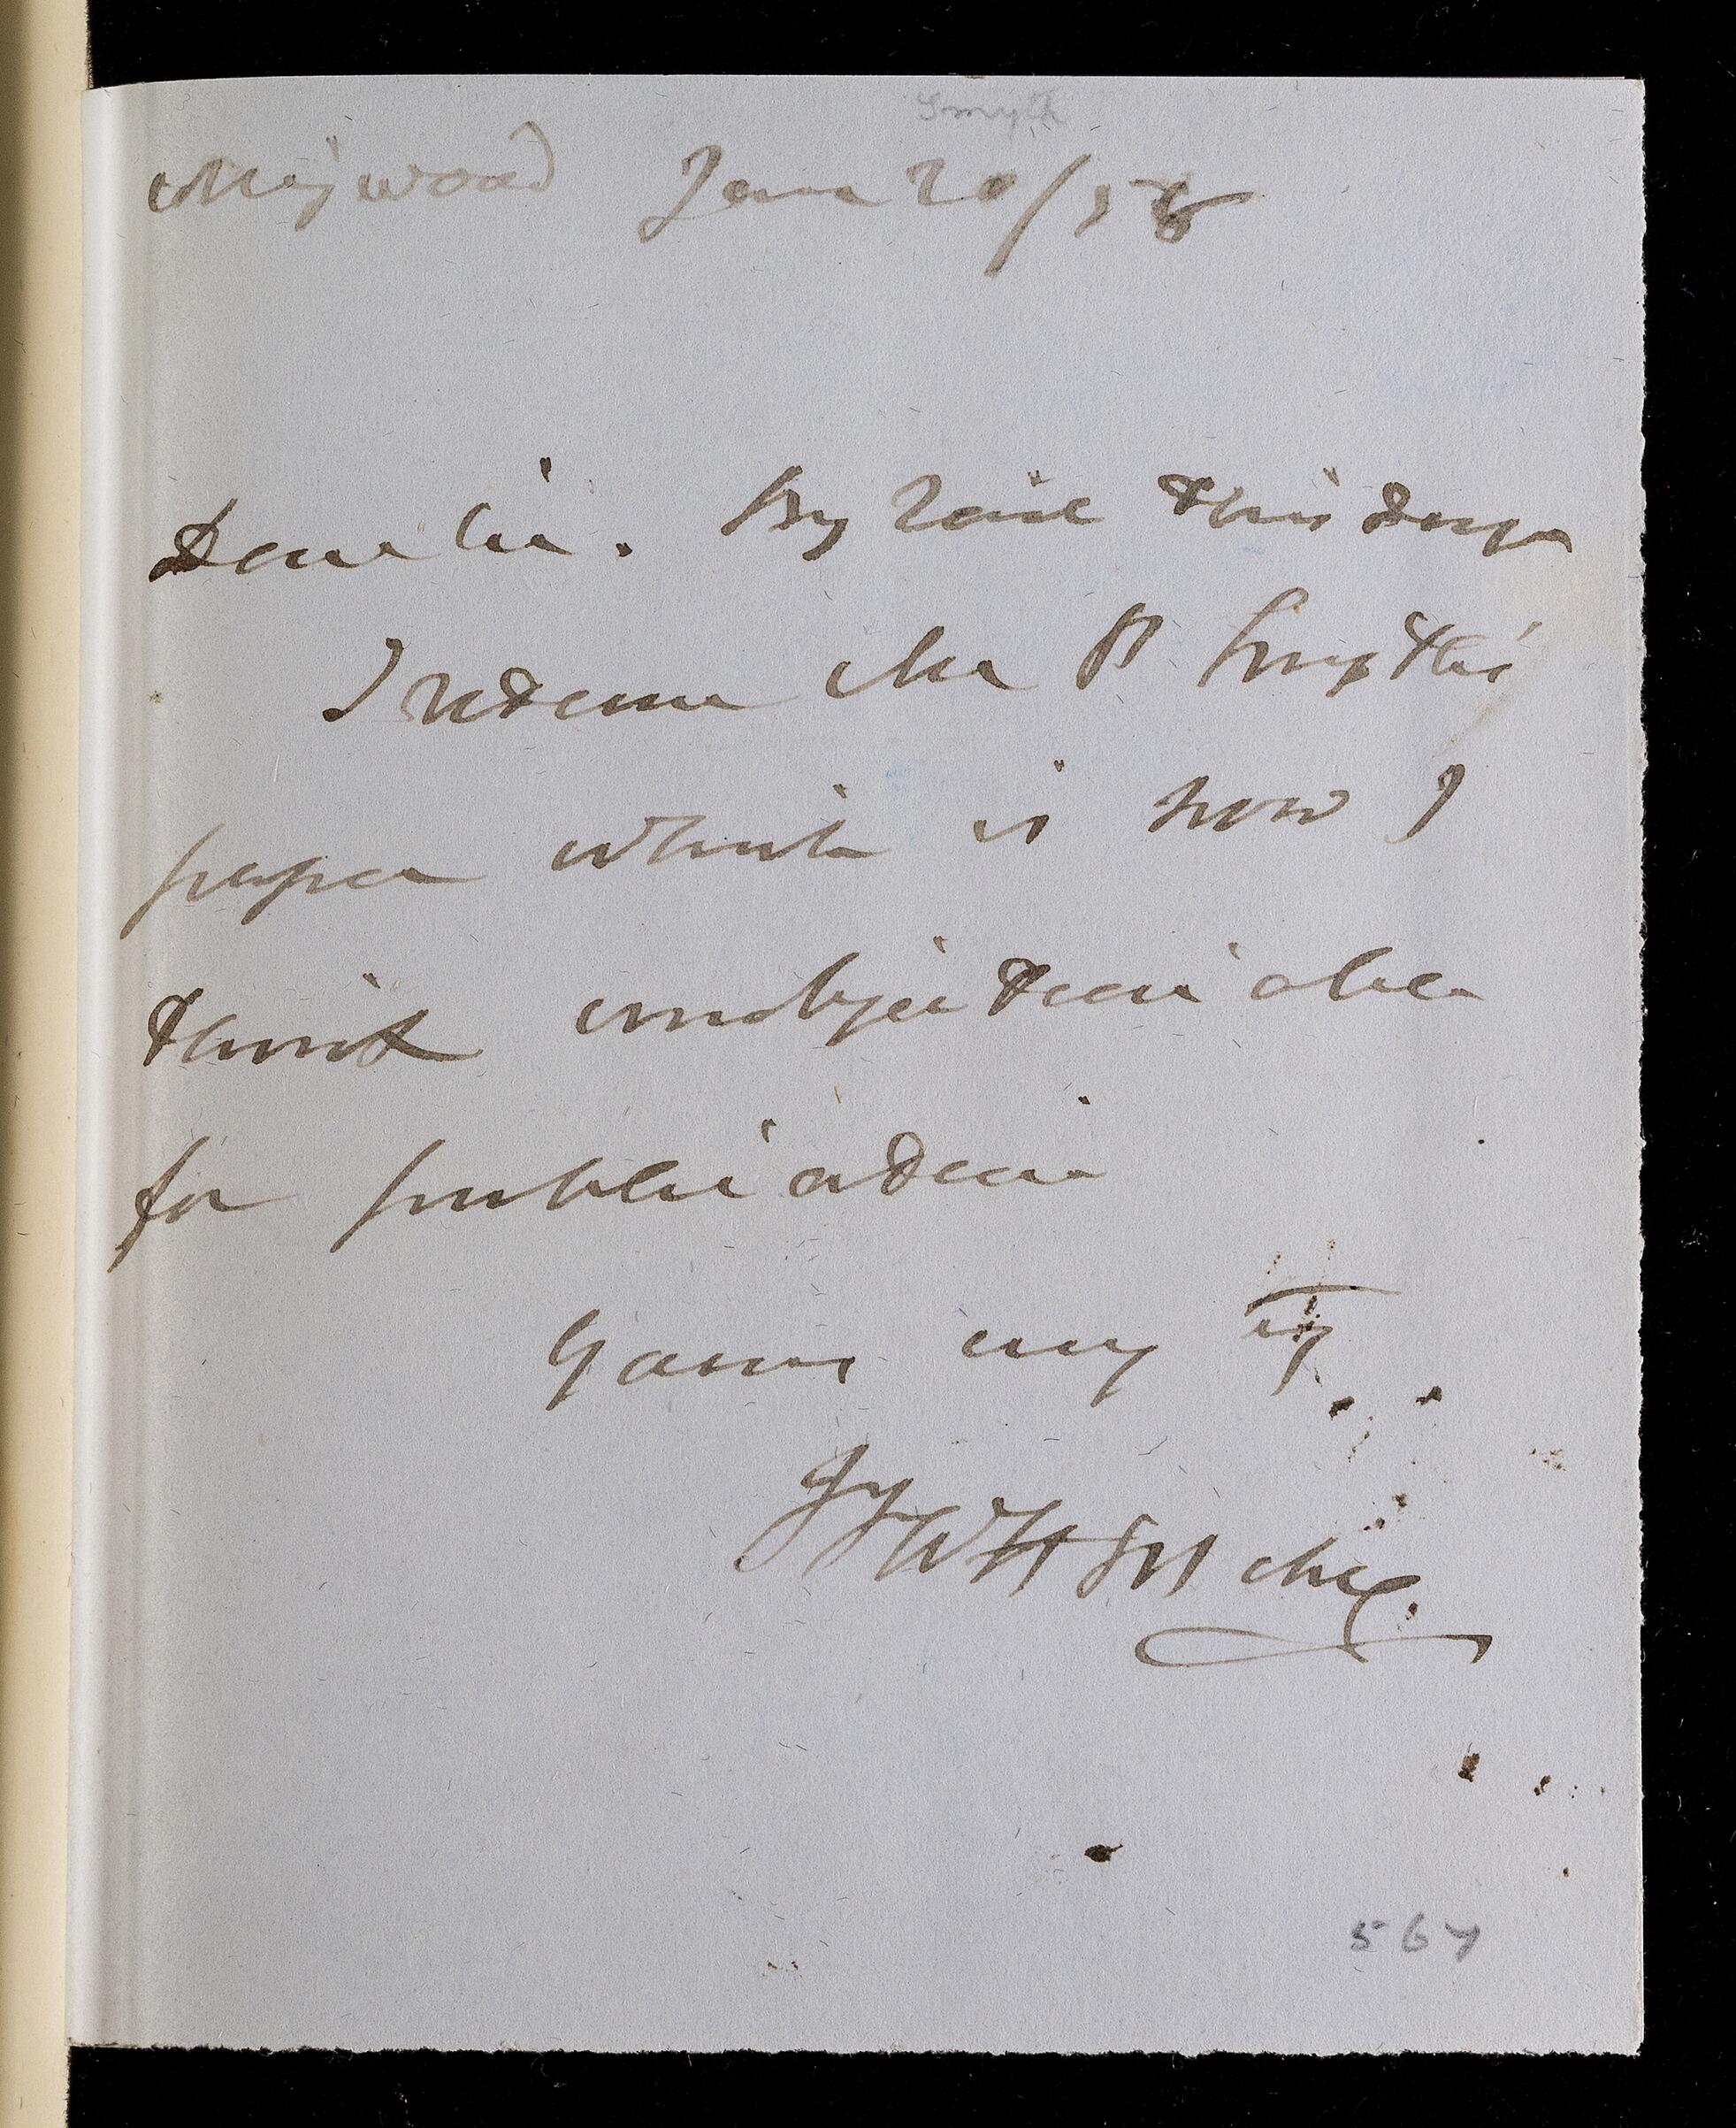 Smyth
Collingwood June 20/58
Dear Sir. By Rail this day
I return Mr P. Smyth's
paper which is now I
think unobjectionable
for publication
Yours very try
JFW Herschel
567